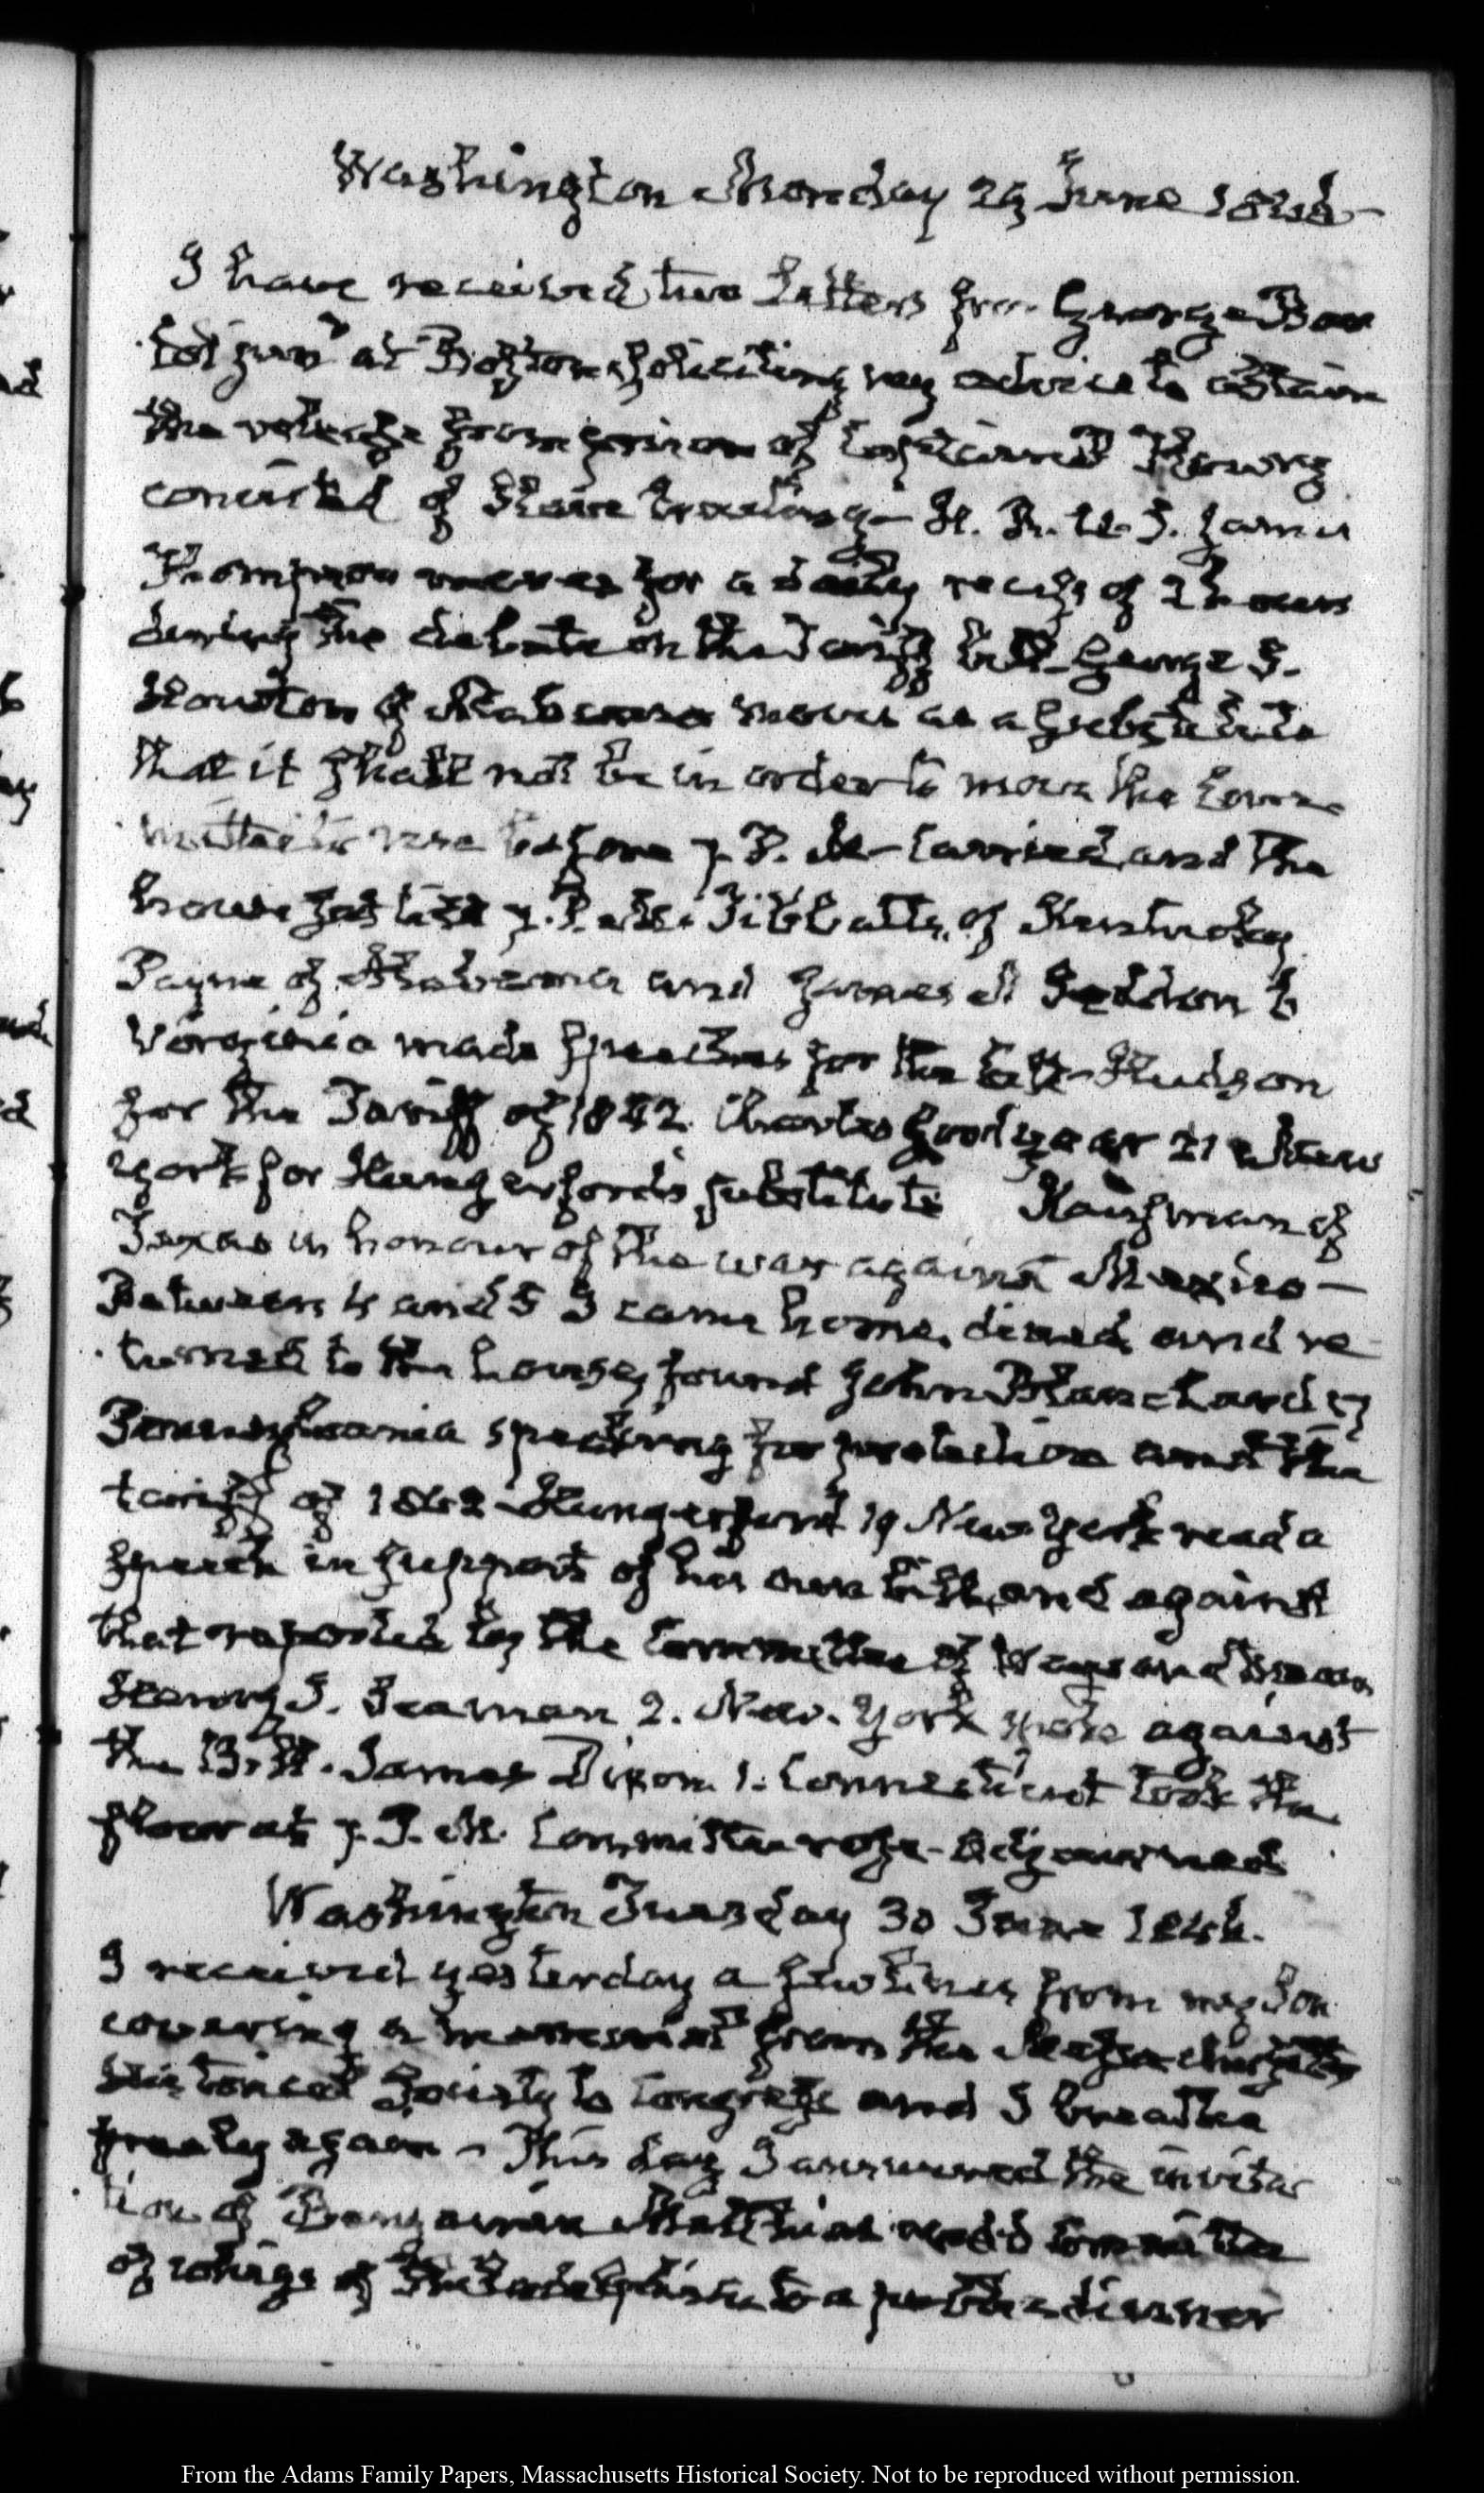 Washington Monday 29 June 1846 -
I have received two Letters from George Bar
tol junr at Boston soliciting my advice to obtain
the release from prison of Captain Thomas
convicted of Slave trading - H. R. U. S. James
Thompson moves for a daily recess of 2 hours
during the debate on the Tariff bill - George S.
Houston of Alabama moves as a substitute
that it shall not be in order to move the Com-
mittee to rise before 7. P. M - Carried, and the
house sat till 7. P. M. Tibbatts, of Kentucky
Payne of Alabama and James A Seddon 6
Virginia made speeches for the bill - Hudson
for the Tariff of 1842. Charles Goodyear 21 New
York for Hungerford's substitute Kaufman of
Texas in honour of the war against Mexico -
Between 4 and 5 I came home, dined, and re-
turned to the house, found John Blanchard 17
Pennsylvania speaking for protection and the
tariff of 1842 - Hungerford 19 New York read a
speech in support of his own bill, and against
that reported by the Committee of Ways and Means
Henry I. Seaman 2. New-York spoke against
the Bill. James Dixon 1. Connecticut took the
floor at 7. P. M. Committee rose - Adjourned
Washington Tuesday 30 June 1846.
I received yesterday a few lines from my Son
covering a memorial from the Massachusetts
Historical Society to Congress and I breathe
freely again - This day I answered the invita
tion of Benjamin Matthias and Committee
of whigs of Philadelphia to a public dinner
From the Adams Family Papers, Massachusetts Historical Society. Not to be reproduced without permission.